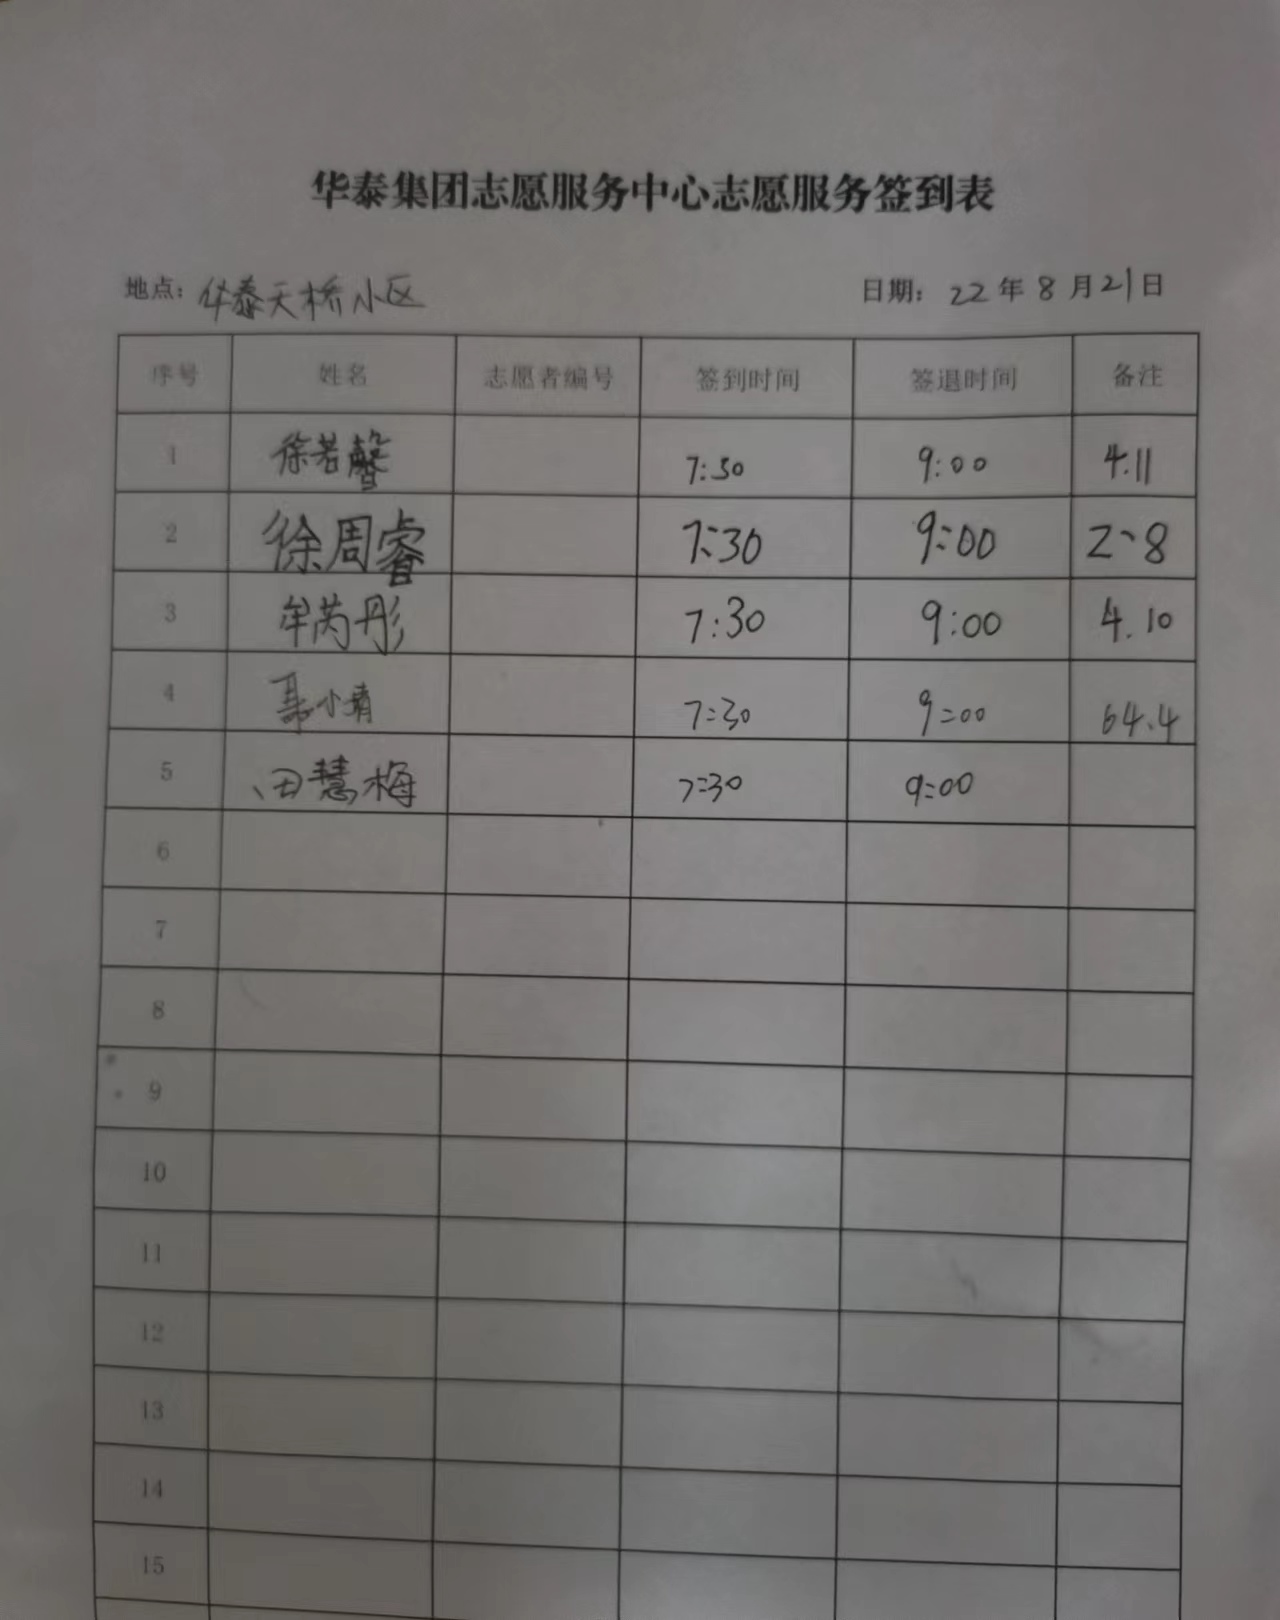 华泰集团志愿服务中心志愿服务签到表
地点：华泰天桥小区 日期：22年8月21日
序号 姓名 志愿者编号 签到时间 签退时间 备注
1 徐若馨 7:30 9:00 4.11
2 徐周睿 7:30 9:00 2、8
3 牟芮彤 7:30 9:00 4.10
4 聂小靖 7:30 9:00 64.4
5 田慧梅 7:30 9:00
6
7
8
9
10
11
12
13
14
15